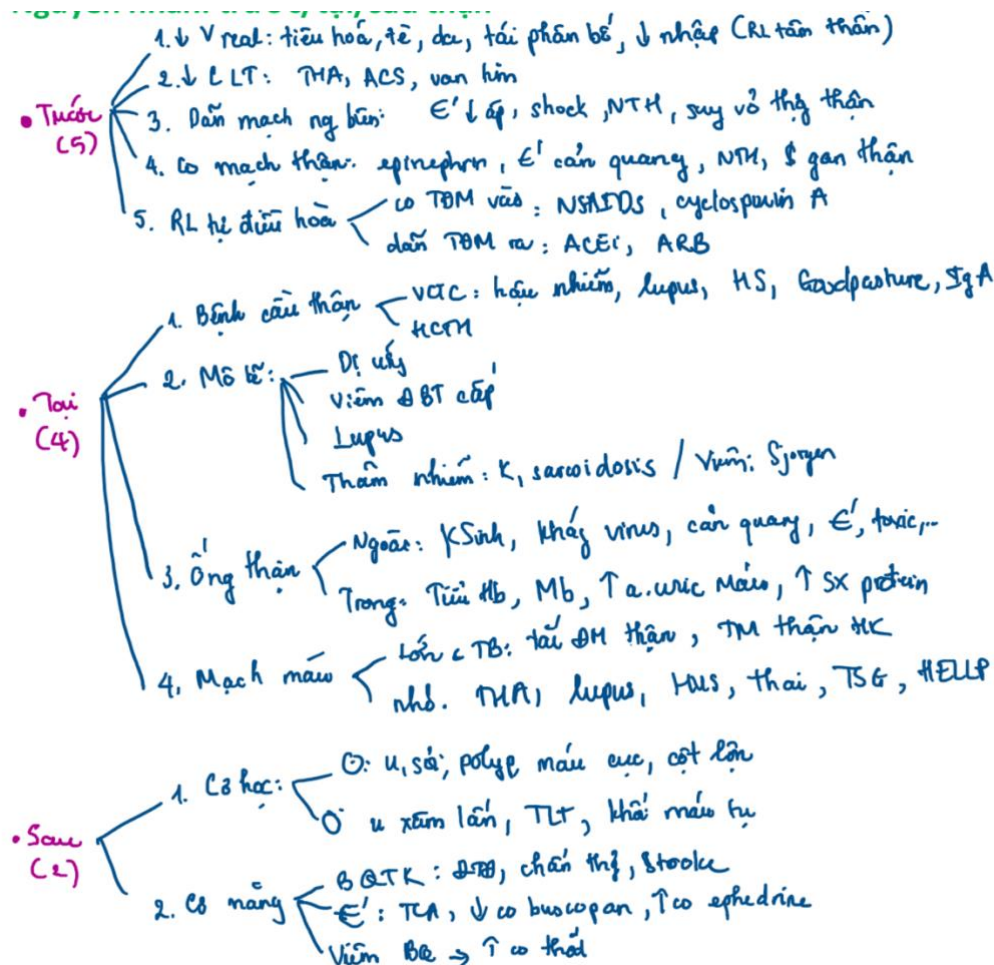 Nguyên nhân trước, tại, sau thận
• Trước (5)
1. ↓ V real: tiêu hoá, tè, da, tái phân bố, ↓ nhập (RL tâm thần)
2. ↓ CLT: THA, ACS, van tim
3. Dãn mạch ng biên: ↓ áp, shock, NTH, suy vỏ thg thận
4. Co mạch thận: epinephrin, cản quang, NTH, $ gan thận
5. RL tự điều hoà
co TĐM vào: NSAIDS, cyclosporin A
dãn TĐM ra: ACEi, ARB
• Tại (4)
1. Bệnh cầu thận
VCTC: hậu nhiễm, lupus, HS, Goodpasture, IgA
HCTH
2. Mô kẽ:
Dị ứng
Viêm ĐBT cấp
Lupus
Thâm nhiễm: K, sarcoidosis / Viêm: Sjorgen
3. Ống thận
Ngoài: KSinh, kháng virus, cản quang, toxic,...
Trong: Tiểu Hb, Mb, ↑ a.uric máu, ↑ SX protein
4. Mạch máu
Lớn c TB: tắc ĐM thận, TM thận HK
nhỏ: THA, lupus, HUS, thai, TSG, HELLP
• Sau (2)
1. Cơ học:
u, sỏi, polyp máu cục, cột lộn
u xâm lấn, TLT, khối máu tụ
2. Cơ năng
BQTK: ĐTĐ, chấn thg, Stroke
TCA, ↓ co buscopan, ↑ co ephedrine
Viêm BQ → ↑ co thắt